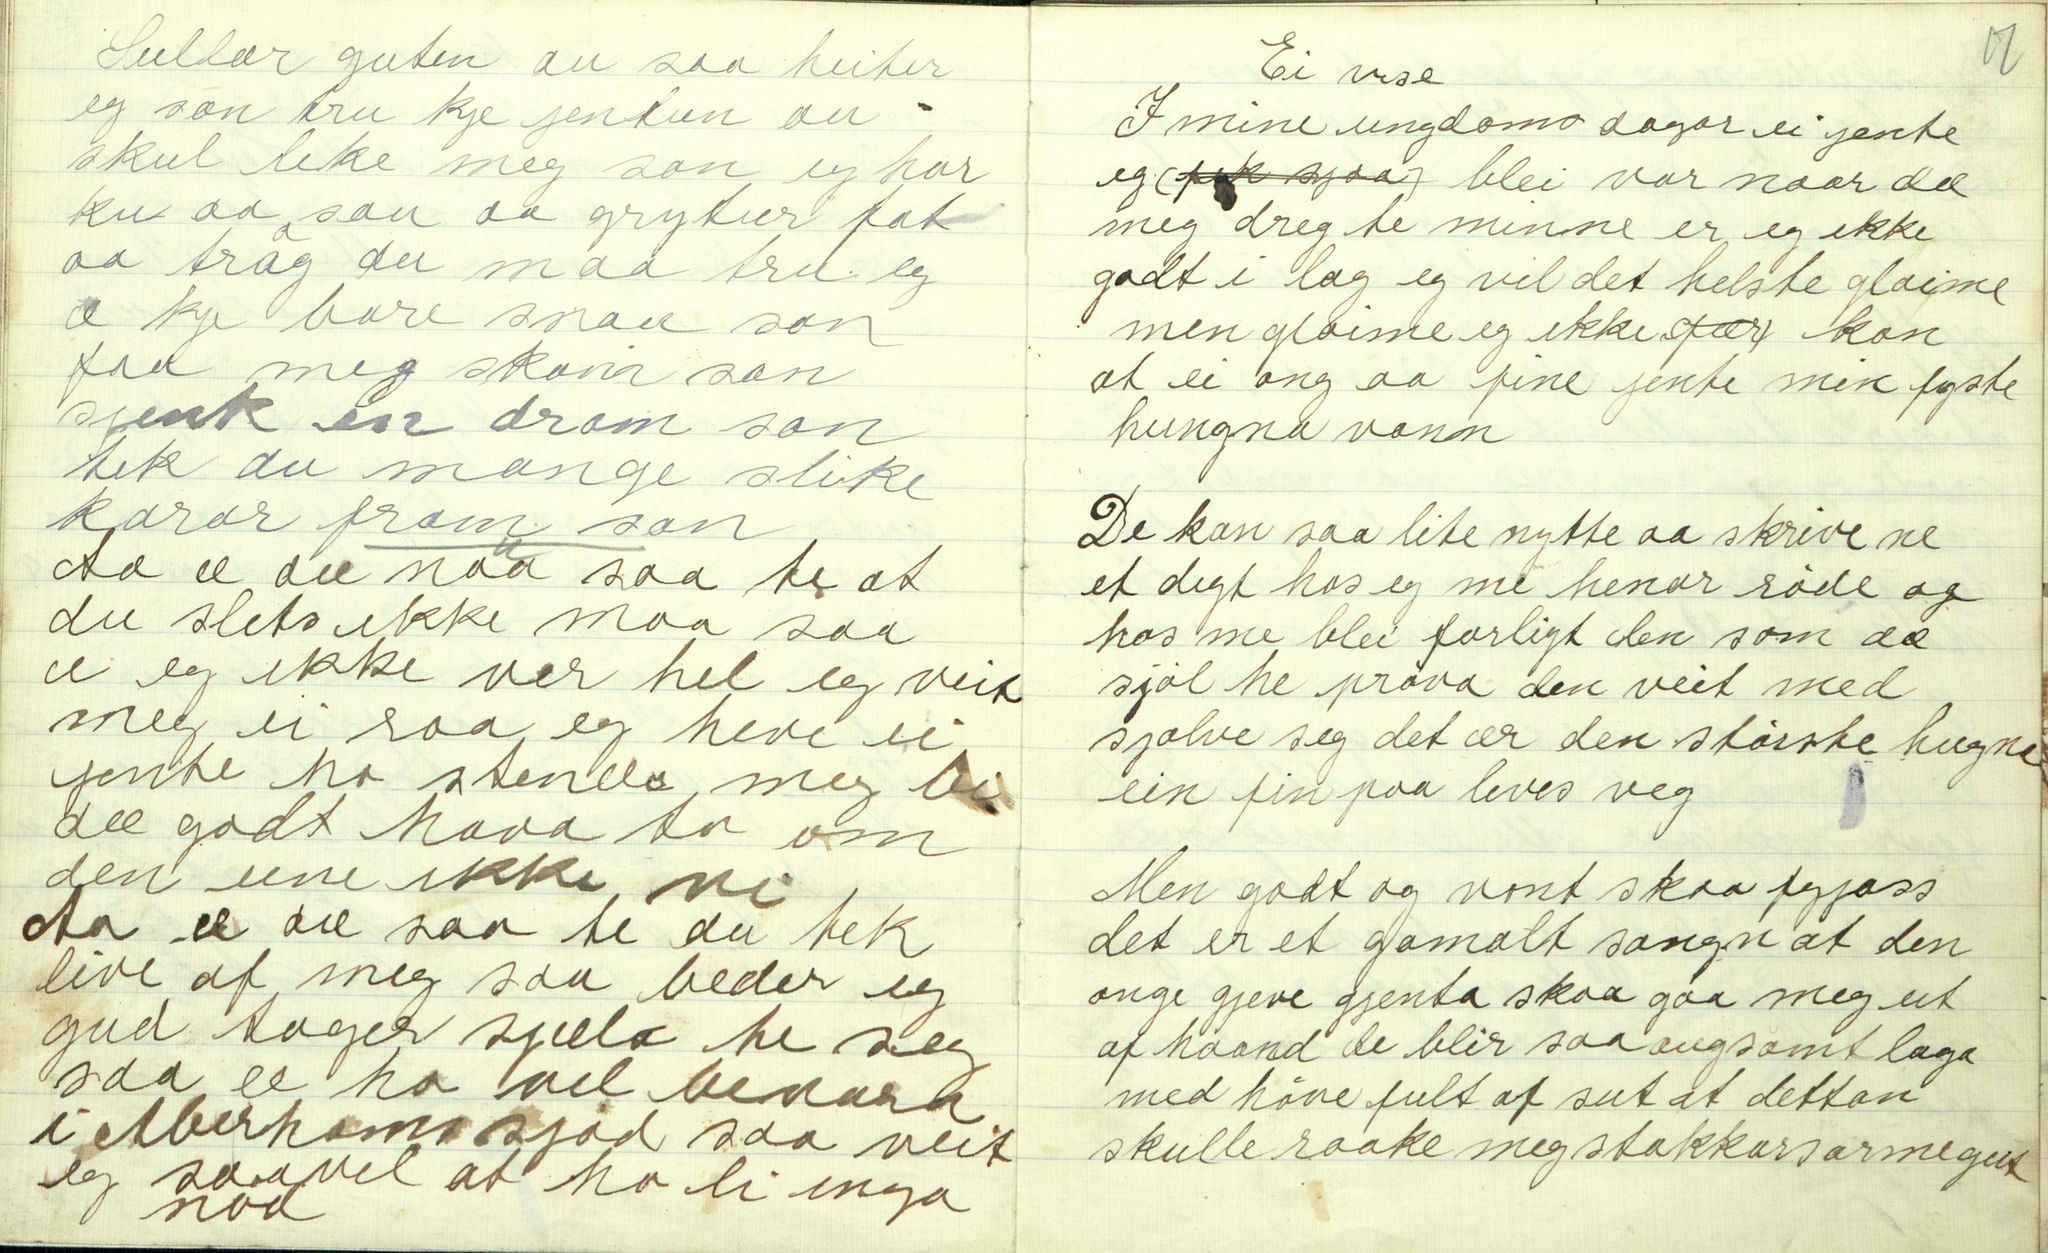 Sullar guten au saa heiter
eg son tru kje jentun au
skul like meg son eg har
ku aa sau aa grytur fat
aa tråg du maa tru eg
æ kje bare snau son
faa meg skam son
sjenk en dram son
tek du mange slike
karar fram son
Aa æ dæ naa saa te at
du slets ikke maa saa
æ eg ikke ver hel eg veit
meg ei raa eg heve ei
jente ho stende meg bi
dæ godt hava to om
den eine ikke ni
Aa æ dæ saa te du tek
live af meg saa beder eg
gud tager sjæla te seg
saa æ ho vel bevara
i Aberhams sjød saa veit
eg saavel at ho li inga
nöd
Ei vise
I mine ungdoms dagar ei jente
eg (fek sjaa) blei var naar dæ
meg dreg te minne er eg ikke
godt i lag eg vil det helste gløime
men gløime eg ikke (før) kan
at ei ong aa fine jente min fyste
hungna vann
De kan saa lite nytte aa skrive ne
et digt hos eg me henar røde og
hos me blei farligt den som dæ
sjøl he prøva den veit med
sjølve seg det ær den största hugna
ein fin paa leves veg
Men godt og vont skaa fyjass
det er et gamalt sangn at den
onge gjeve gjenta skaa gaa meg ut
af haand de blir saa augsomt laga
med høve fult af sut at dettan
skulle raake meg stakkars arme gut